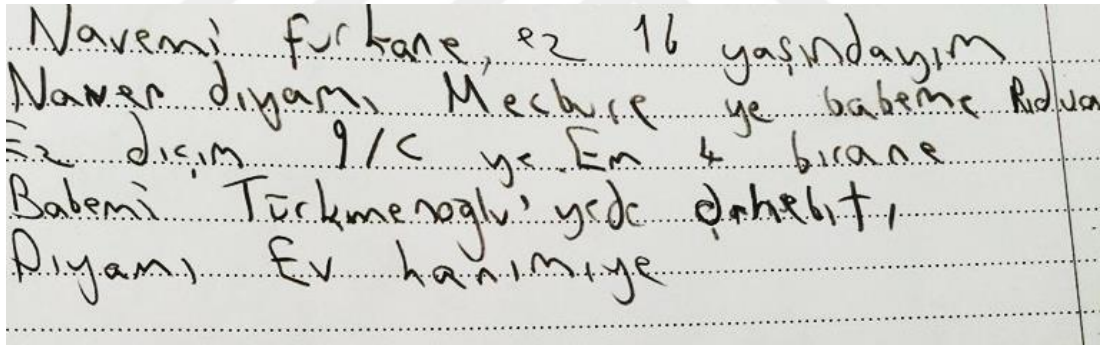 Navemi furkane, ez 16 yaşındayım
Naven diyamı Mecbure ye babeme Rıdva
Ez dıçım 9/C ye Em 4 bırane
Babemi Türkmenoğlu' yede
Diyamı Ev hanımiye